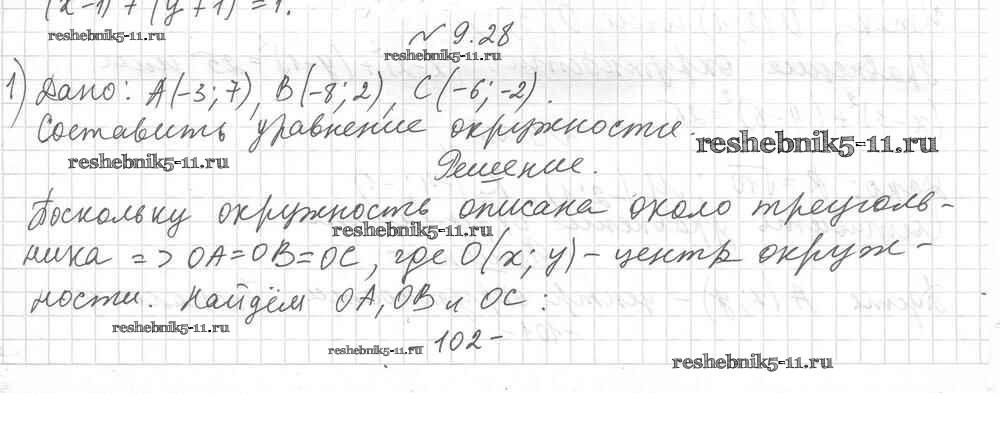 (x-1) + (y+1) = 1.
reshebnik5-11.ru
№ 9.28
reshebnik5-11.ru
1) Дано: A(-3; 7), B(-8; 2), C(-6; -2).
Составить уравнение окружности.
reshebnik5-11.ru
reshebnik5-11.ru
Решение.
Поскольку окружность описана около треуголь-
reshebnik5-11.ru
ника => OA=OB=OC, где O(x; y) - центр окруж-
ности. Найдём OA, OB и OC:
reshebnik5-11.ru
102-
reshebnik5-11.ru
reshebnik5-11.ru